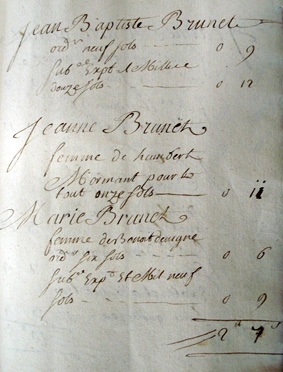 Jean Baptiste Brunet
ord.re neuf sols — 0 9
Sub.ce Exp.t & Millice
douze sols — 0 12
Jeanne Brunet
femme de humbert
Mormant pour le
tout onze sols — 0 11
Marie Brunet
femme de Benoit
ord.re six sols — 0 6
Sub.ce Exp.t Et Mil neuf
sols — 0 9
2 7